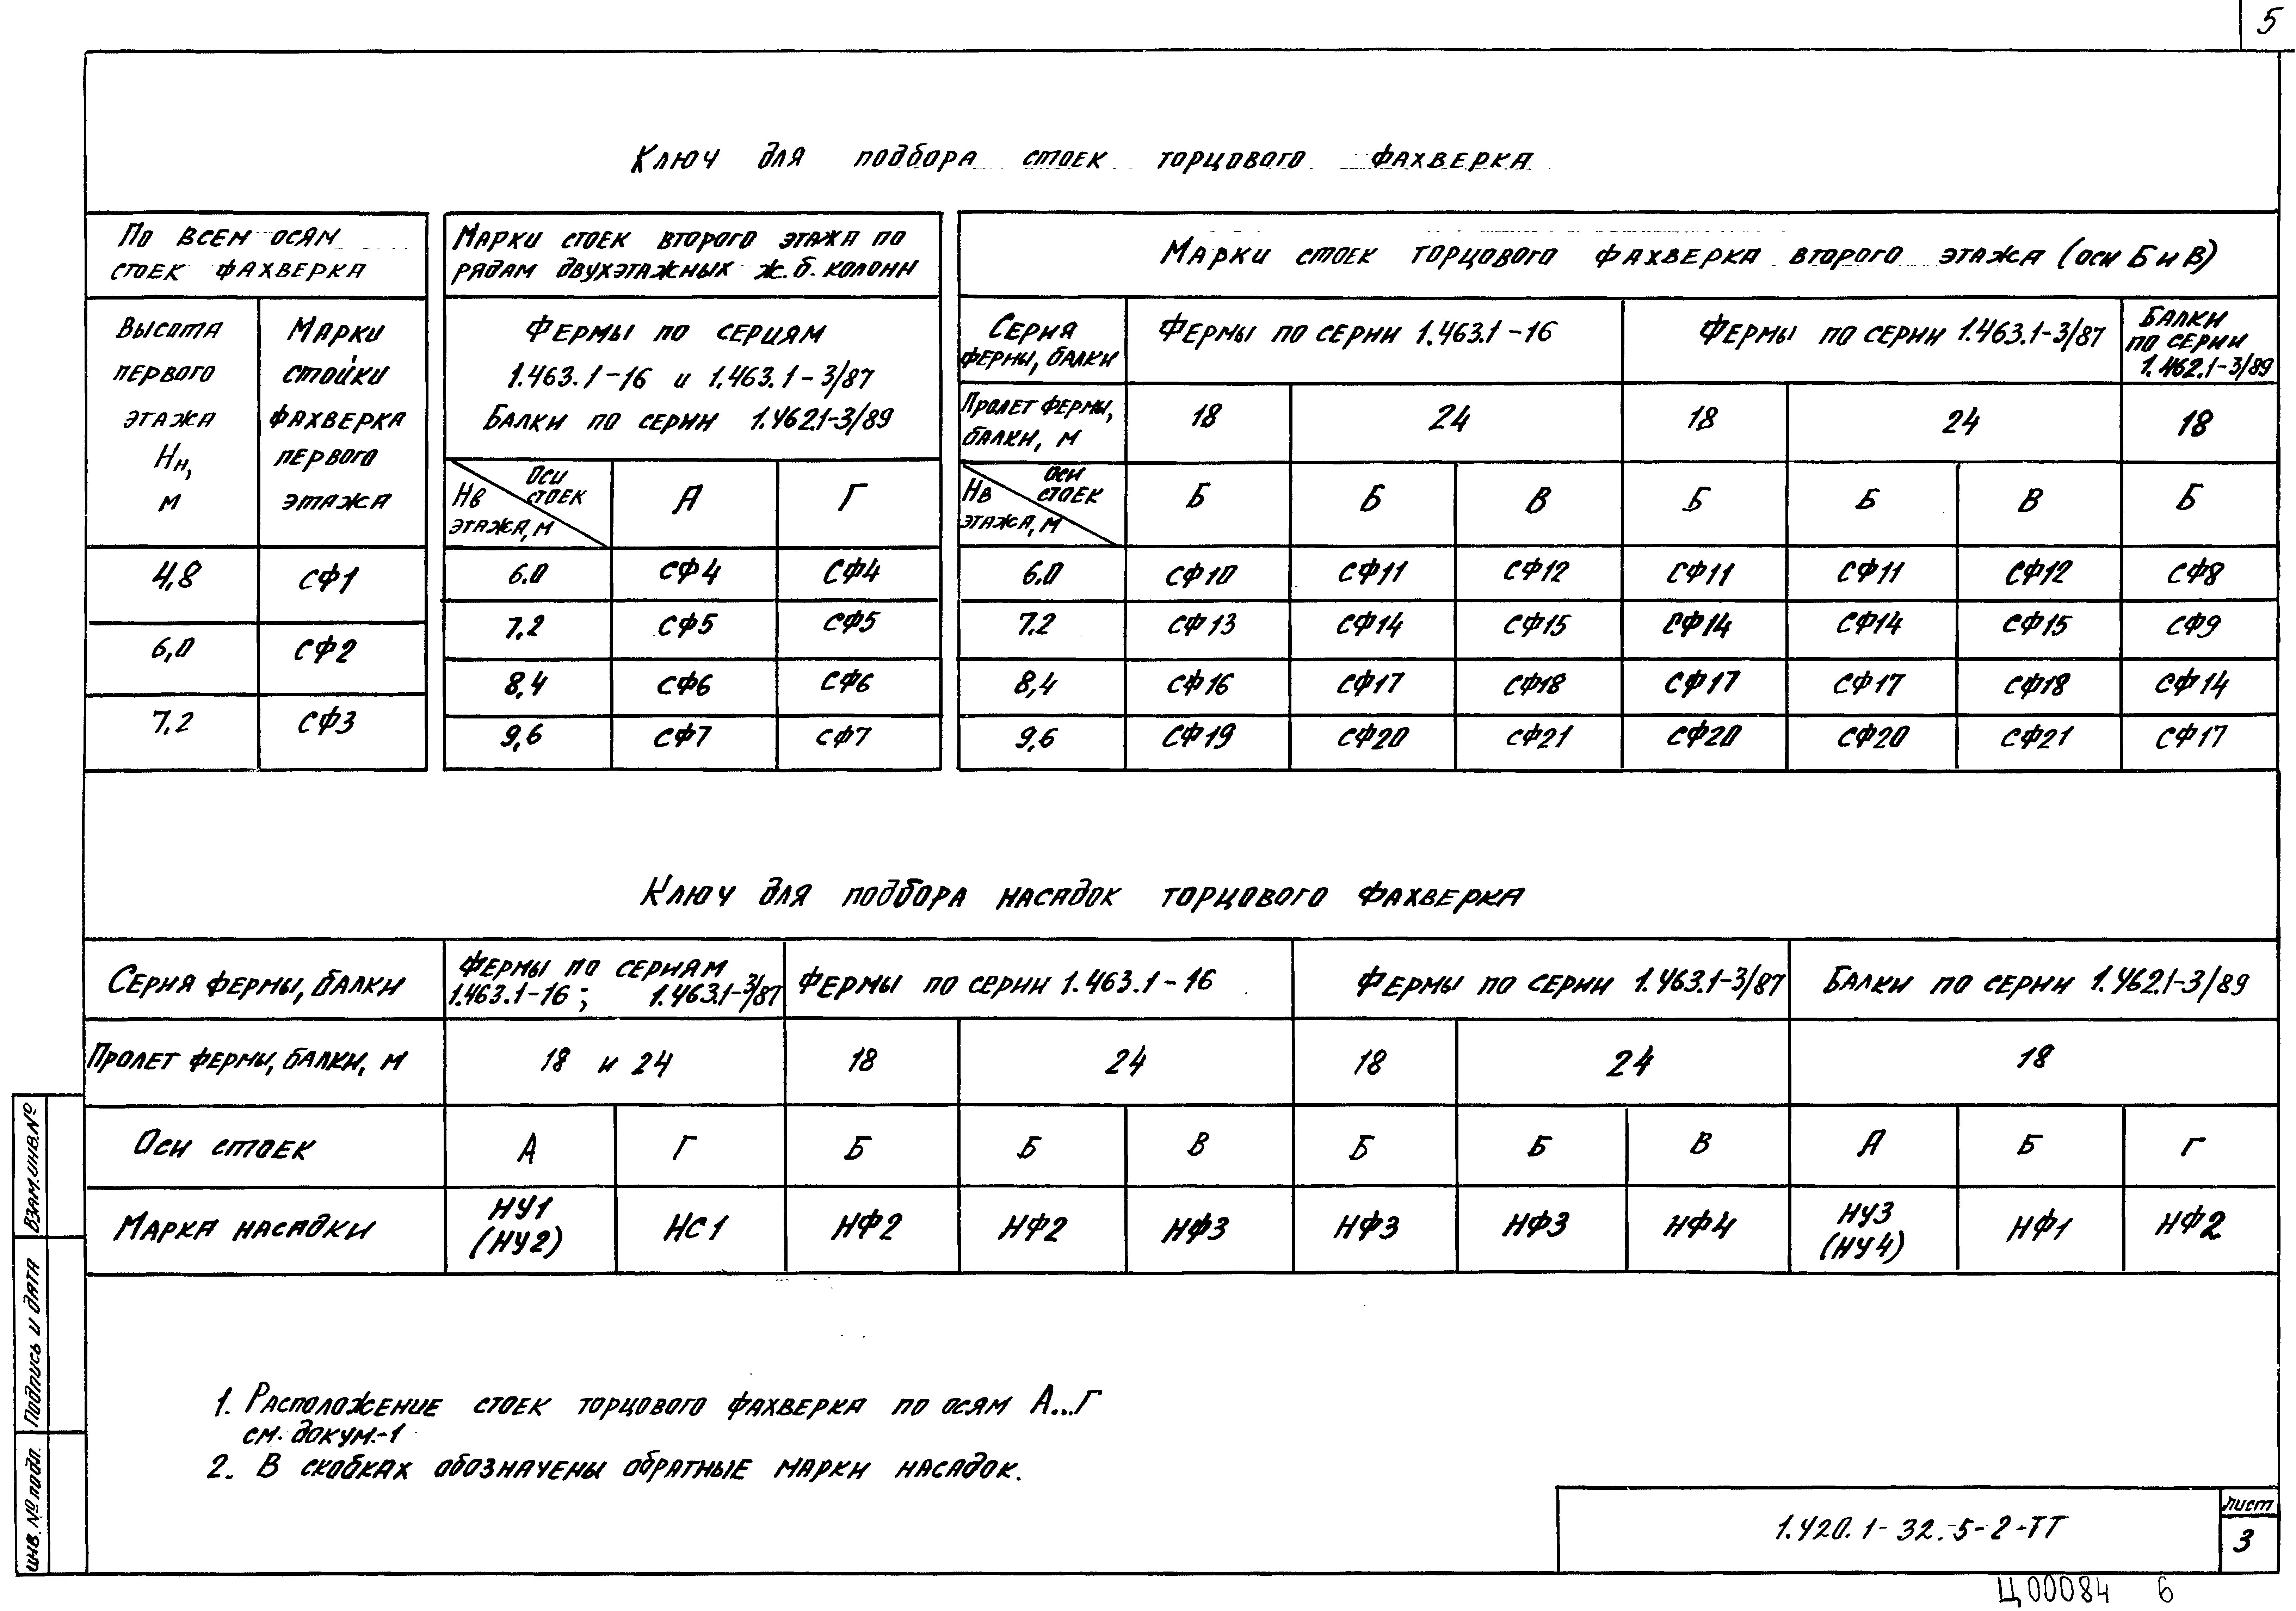 5
Ключ для подбора стоек торцового фахверка
По всем осям
стоек фахверка
Высота
первого
этажа
Нн,
м
Марки
стойки
фахверка
первого
этажа
4,8 СФ1
6,0 СФ2
7,2 СФ3
Марки стоек второго этажа по
рядам двухэтажных ж.б. колонн
Фермы по сериям
1.463.1-16 и 1.463.1-3/87
Балки по серии 1.462.1-3/89
Оси
стоек
Нв
этажа, м
А Г
6.0 СФ4 СФ4
7.2 СФ5 СФ5
8,4 СФ6 СФ6
9,6 СФ7 СФ7
Марки стоек торцового фахверка второго этажа (оси Б и В)
Серия
фермы, балки
Фермы по серии 1.463.1-16
Фермы по серии 1.463.1-3/87
Балки
по серии
1.462.1-3/89
Пролет фермы,
балки, м
18 24 18 24 18
Оси
стоек
Нв
этажа, м
Б Б В Б Б В Б
6.0 СФ10 СФ11 СФ12 СФ11 СФ11 СФ12 СФ8
7.2 СФ13 СФ14 СФ15 СФ14 СФ14 СФ15 СФ9
8,4 СФ16 СФ17 СФ18 СФ17 СФ17 СФ18 СФ14
9,6 СФ19 СФ20 СФ21 СФ20 СФ20 СФ21 СФ17
Ключ для подбора насадок торцового фахверка
Серия фермы, балки
Фермы по сериям
1.463.1-16; 1.463.1-3/87
Фермы по серии 1.463.1-16
Фермы по серии 1.463.1-3/87
Балки по серии 1.462.1-3/89
Пролет фермы, балки, м 18 и 24 18 24 18 24 18
Оси стоек А Г Б Б В Б Б В А Б Г
Марка насадки НУ1 (НУ2) НС1 НФ2 НФ2 НФ3 НФ3 НФ3 НФ4 НУ3 (НУ4) НФ1 НФ2
1. Расположение стоек торцового фахверка по осям А...Г
см. докум.-1
2. В скобках обозначены обратные марки насадок.
Взам.инв.№
Подпись и дата
Инв. № подл.
1.420.1-32.5-2-ТТ
Лист
3
Ц00084 6